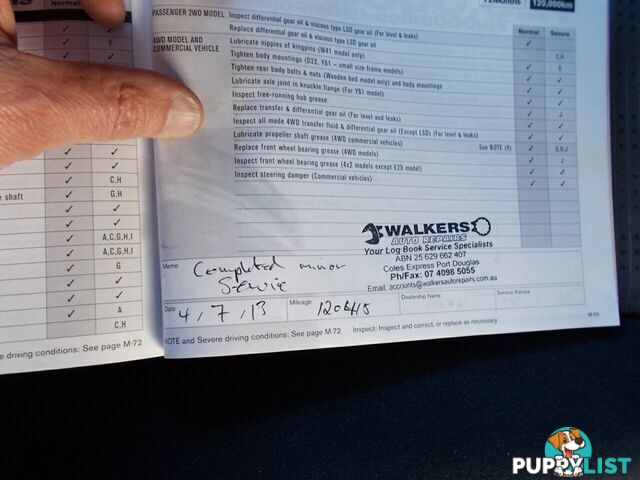 Normal
F
C,H
e shaft
G,H
A,C,G,H,I
A,C,G,H,I
G
A
C,H
e driving conditions: See page M-72
120,000km
PASSENGER 2WD MODEL
Inspect differential gear oil & viscous type LSD gear oil (For level & leaks)
Replace differential gear oil & viscous type LSD gear oil
4WD MODEL AND
COMMERCIAL VEHICLE
Lubricate nipples of kingpins (W41 model only)
Tighten body mountings (D22, Y61 – small size frame models)
Tighten rear body bolts & nuts (Wooden bed model only) and body mountings
Lubricate axle joint in knuckle flange (For Y61 model)
Inspect free-running hub grease
Replace transfer & differential gear oil (For level and leaks)
Inspect all mode 4WD transfer fluid & differential gear oil (Except LSD) (For level & leaks)
Lubricate propeller shaft grease (4WD commercial vehicles)
Replace front wheel bearing grease (4WD models) See NOTE (9)
Inspect front wheel bearing grease (4x2 models except E25 model)
Inspect steering damper (Commercial vehicles)
Normal Severe
G
J
G,H,J
J
WALKERS
AUTO REPAIRS
Your Log Book Service Specialists
ABN 25 629 662 407
Coles Express Port Douglas
Ph/Fax: 07 4098 5055
Email: accounts@walkersautorepairs.com.au
Memo Completed minor
Service
Date 4 / 7 / 13
Mileage
Dealership Name
Service Advisor
NOTE and Severe driving conditions: See page M-72 Inspect: Inspect and correct, or replace as necessary.
PUPPYLIST